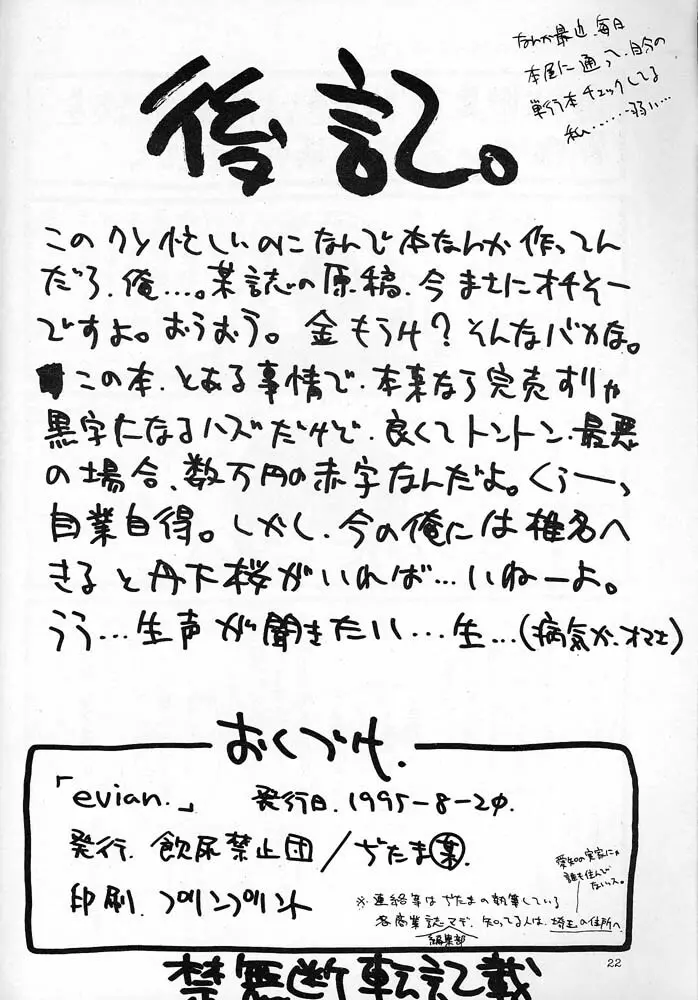 なんか最近、毎日
本屋に通って、自分の
単行本チェックしてる
私、……弱い…
後記。
このクソ忙しいのになんで本なんか作ってん
だろ、俺…。某誌の原稿、今まさにオチそー
ですよ。おうおう。金もうけ？そんなバカな。
この本、とある事情で、本来なら完売すりゃ
黒字になるハズだけど、良くてトントン、最悪
の場合、数万円の赤字なんだよ。くぅーっ
自業自得。しかし、今の俺には椎名へ
きると丹下桜がいれば…いねーよ。
うう…生声が聞きたい…生…(病気か、オマエ)
おくづけ.
「evian.」 発行日.1995-8-20.
発行. 飲尿禁止団/ぢたま某.
印刷. プリンプリント
※連絡等はぢたまの執筆している
各商業誌編集部マデ、知ってる人は、埼玉の住所へ
愛知の実家にゃ
誰も住んで
ないっス。
禁無断転記載
22